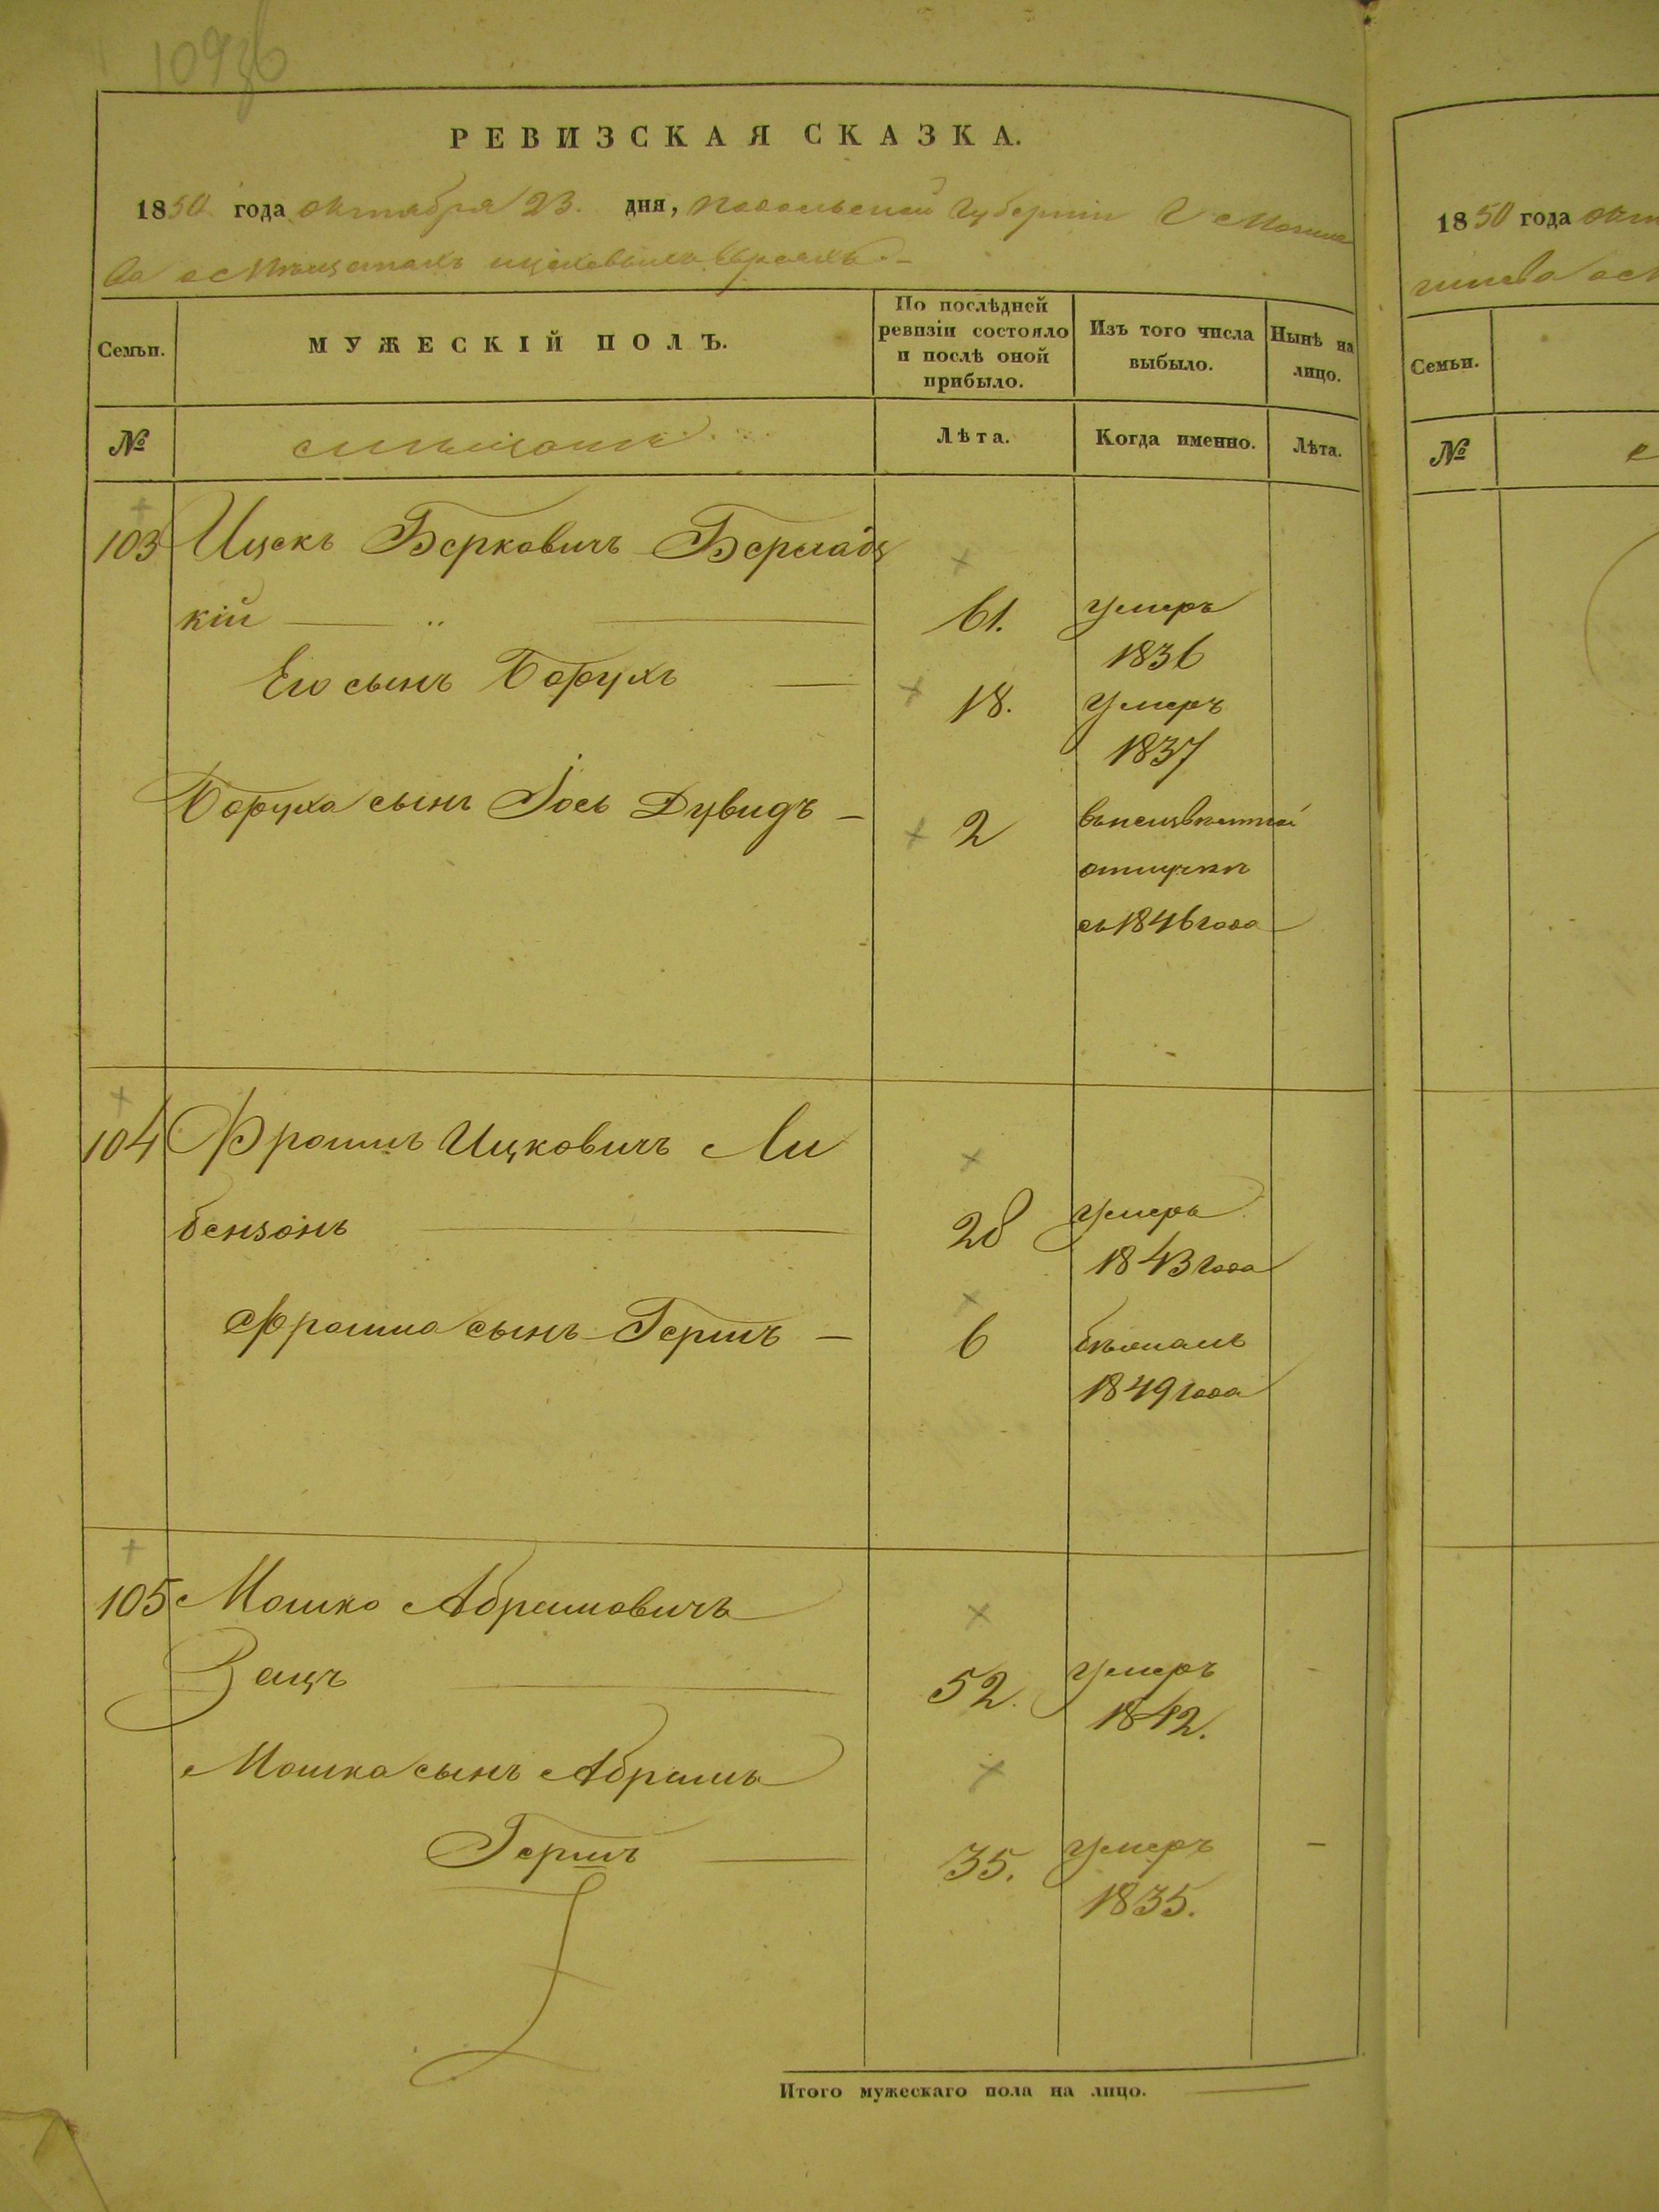 РЕВИЗСКАЯ СКАЗКА.
1850 года октября 23. дня, Подольской Губерніи Г Могиле
ва о мѣщанахъ евреяхъ
Семьи.
МУЖЕСКІЙ ПОЛЪ.
По послѣдней
ревизіи состояло
и послѣ оной
прибыло.
Изъ того числа
выбыло.
Нынѣ на
лицо.
№
мѣщане
Лѣта.
Когда именно.
Лѣта.
103 Ицекъ Берковичъ Бершадс
кій 61. умеръ
1836
Его сынъ Борухъ 18. умеръ
1837
Боруха сынъ Іось Дувидъ 2 въ неизвѣстной
отлучкѣ
съ 1846 года
104 Фроимъ Ицковичъ Ли
бензонъ 28 умеръ
1843 года
Фроима сынъ Гершъ 6
1849 года
105 Мошко Абрамовичъ
Зацъ 52. умеръ
1842.
Мошка сынъ Абрамъ
Гершъ 35. умеръ
1835.
Итого мужескаго пола на лицо.
1850 года окт
гилева о м
Семьи.
№